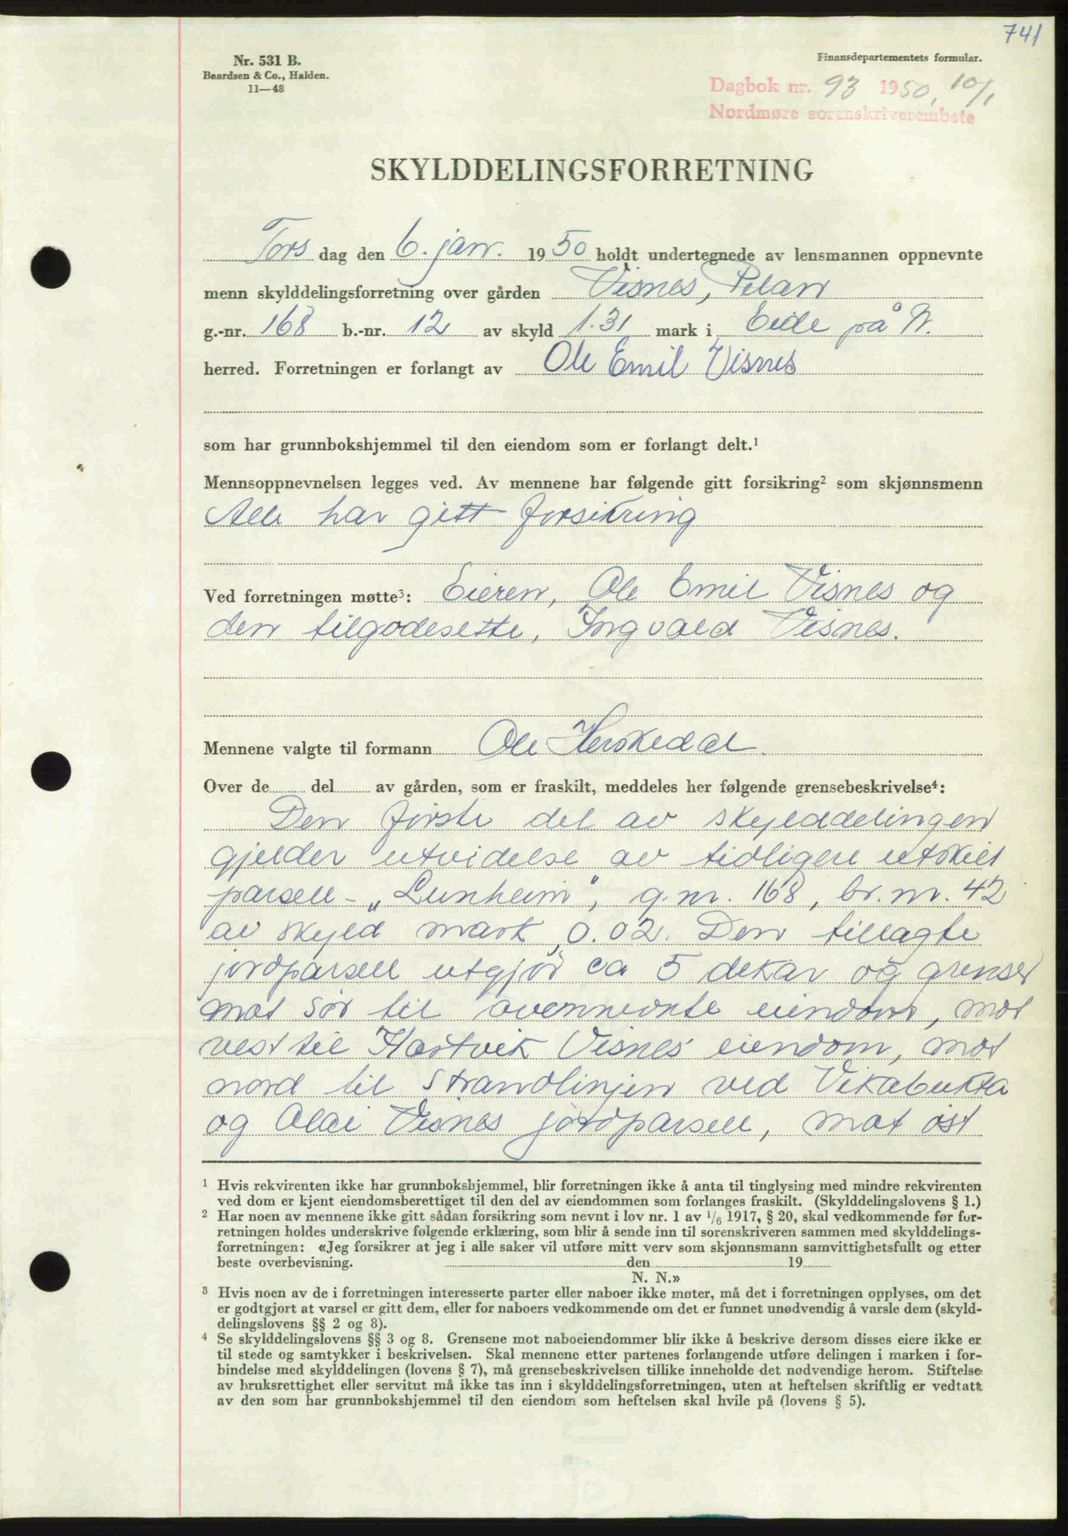 741
Nr. 531 B.
Baardsen & Co., Halden.
11—48
Finansdepartementets formular.
Dagbok nr. 93 1950, 10/1
Nordmøre sorenskriverembete
SKYLDDELINGSFORRETNING
Tors dag den 6. jan. 1950 holdt undertegnede av lensmannen oppnevnte
menn skylddelingsforretning over gården Visnes, Pelan
g.-nr. 168 b.-nr. 12 av skyld 1.31 mark i Eide på N.
herred. Forretningen er forlangt av Ole Emil Visnes
som har grunnbokshjemmel til den eiendom som er forlangt delt.¹
Mennsoppnevnelsen legges ved. Av mennene har følgende gitt forsikring² som skjønnsmenn
Alle har gitt forsikring
Ved forretningen møtte³: Eieren, Ole Emil Visnes og
den tilgodesette, Ingvald Visnes.
Mennene valgte til formann Ole Herskedal
Over de del av gården, som er fraskilt, meddeles her følgende grensebeskrivelse⁴:
Den første del av skylddelingen
gjelder utvidelse av tidligere utskilt
parsell - „Lunheim“, g.nr. 168, br.nr. 42
av skyld mark 0.02. Den tillagte
jordparsell utgjør ca 5 dekar og grenser
mot sør til ovennevnte eiendom, mot
vest til Hartvik Visnes eiendom, mot
nord til strandlinjen ved Vikabukta
og Olai Visnes jordparsell, mot øst
¹ Hvis rekvirenten ikke har grunnbokshjemmel, blir forretningen ikke å anta til tinglysing med mindre rekvirenten
ved dom er kjent eiendomsberettiget til den del av eiendommen som forlanges fraskilt. (Skylddelingslovens § 1.)
² Har noen av mennene ikke gitt sådan forsikring som nevnt i lov nr. 1 av 1/6 1917, § 20, skal vedkommende før for-
retningen holdes underskrive følgende erklæring, som blir å sende inn til sorenskriveren sammen med skylddelings-
forretningen: «Jeg forsikrer at jeg i alle saker vil utføre mitt verv som skjønnsmann samvittighetsfullt og etter
beste overbevisning. den 19
N. N.»
³ Hvis noen av de i forretningen interesserte parter eller naboer ikke møter, må det i forretningen opplyses, om det
er godtgjort at varsel er gitt dem, eller for naboers vedkommende om det er funnet unødvendig å varsle dem (skyld-
delingslovens §§ 2 og 8).
⁴ Se skylddelingslovens §§ 3 og 8. Grensene mot naboeiendommer blir ikke å beskrive dersom disses eiere ikke er
til stede og samtykker i beskrivelsen. Skal mennene etter partenes forlangende utføre delingen i marken i for-
bindelse med skylddelingen (lovens § 7), må grensebeskrivelsen tillike inneholde det nødvendige herom. Stiftelse
av bruksrettighet eller servitut må ikke tas inn i skylddelingsforretningen, uten at heftelsen skriftlig er vedtatt
av den som har grunnbokshjemmel til den eiendom som heftelsen skal hvile på (lovens § 5).